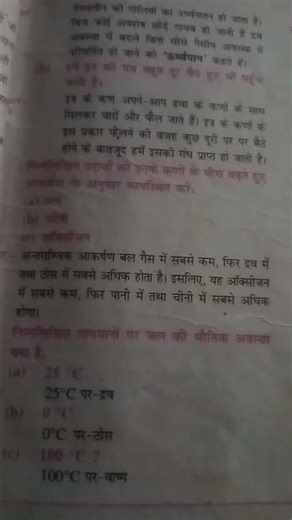 नेफ्थलीन की गोलियों का उर्ध्वपातन हो जाता है।
बिना कोई अवशेष छोड़े गायब हो जाती हैं द्रव
अवस्था में बदले बिना सीधे गैसीय अवस्था में
परिवर्तित हो जाने को 'ऊर्ध्वपान' कहते हैं।
(b) हमें इत्र की गंध बहुत दूर बैठे हुए भी पहुँच
जाती है।
इत्र के कण अपने-आप हवा के कणों के साथ
मिलकर चारों और फैल जाते हैं। इत्र के कणों के
इस प्रकार फैलने की वजह कुछ दूरी पर पर बैठे
होने के बावजूद हमें इसकी गंध प्राप्त हो जाती है।
निम्नलिखित पदार्थों को उनके कणों के बीच बढ़ते हुए
आकर्षण के अनुसार व्यवस्थित करें।
(a) जल
(b) चीनी
(c) ऑक्सीजन
अन्तराण्विक आकर्षण बल गैस में सबसे कम, फिर द्रव में
तथा ठोस में सबसे अधिक होता है। इसलिए, यह ऑक्सीजन
में सबसे कम, फिर पानी में तथा चीनी में सबसे अधिक
होगा।
निम्नलिखित तापमानों पर जल की भौतिक अवस्था
क्या है:
(a) 25 °C
25°C पर-द्रव
(b) 0 °C
0°C पर-ठोस
(c) 100 °C ?
100°C पर-वाष्प